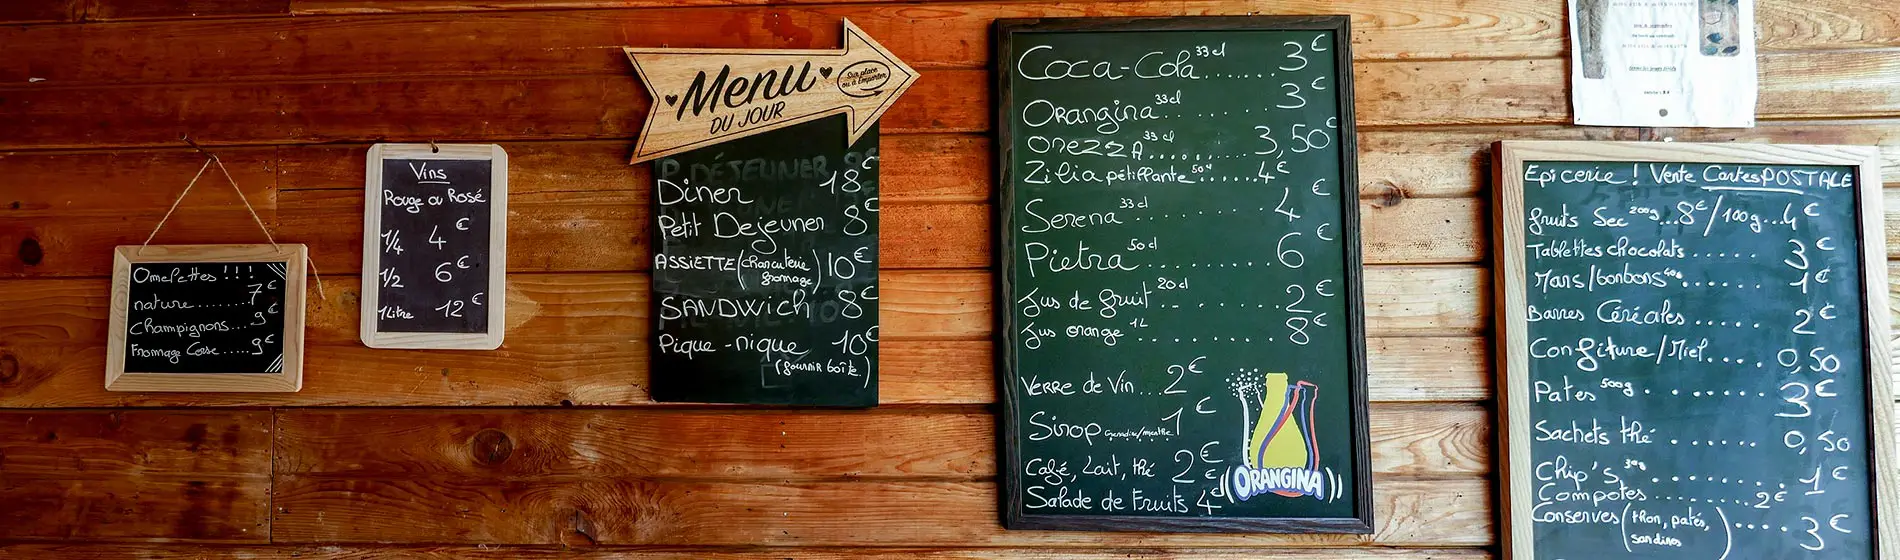 Omelettes !!!
nature........7€
Champignons...9€
Fromage Corse.....9€
Vins
Rouge ou Rosé
1/4 4€
1/2 6€
1 Litre 12€
Menu
DU JOUR
Sur place
ou à Emporter
P. DÉJEUNER 8€
Diner 18€
Petit Dejeuner 8€
ASSIETTE (charcuterie fromage) 10€
SANDWich 8€
Pique-nique 10€
(fournir boîte.)
Coca-Cola 33cl.......3€
Orangina 33cl.......3€
OREZZA 33cl.......3,50€
Zilia pétillante 50cl......4€
Serena 33cl........4€
Pietra 50cl.........6€
Jus de fruit 20cl.........2€
Jus orange 1L.........8€
Verre de Vin...2€
Sirop Grenadine/menthe 1€
Café, Lait, thé 2€
Salade de Fruits 4€
ORANGINA
Epicerie ! Vente Cartes POSTALE
fruits Sec 200g...8€/100g...4€
Tablettes chocolats......3€
Mars/bonbons.......1€
Barres Céréales.....2€
Confiture/Miel....0,50
Pates 500g.......3€
Sachets thé......0,50
Chip's 30g.........1€
Compotes........2€
Conserves (thon, patés, sardines)....3€